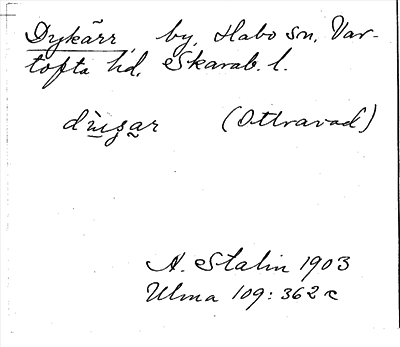 Dykärr, by, Habo sn, Var-
tofta hd, Skarab. l.
(Ottravad)
A. Stalin 1903
Ulma 109: 362 c